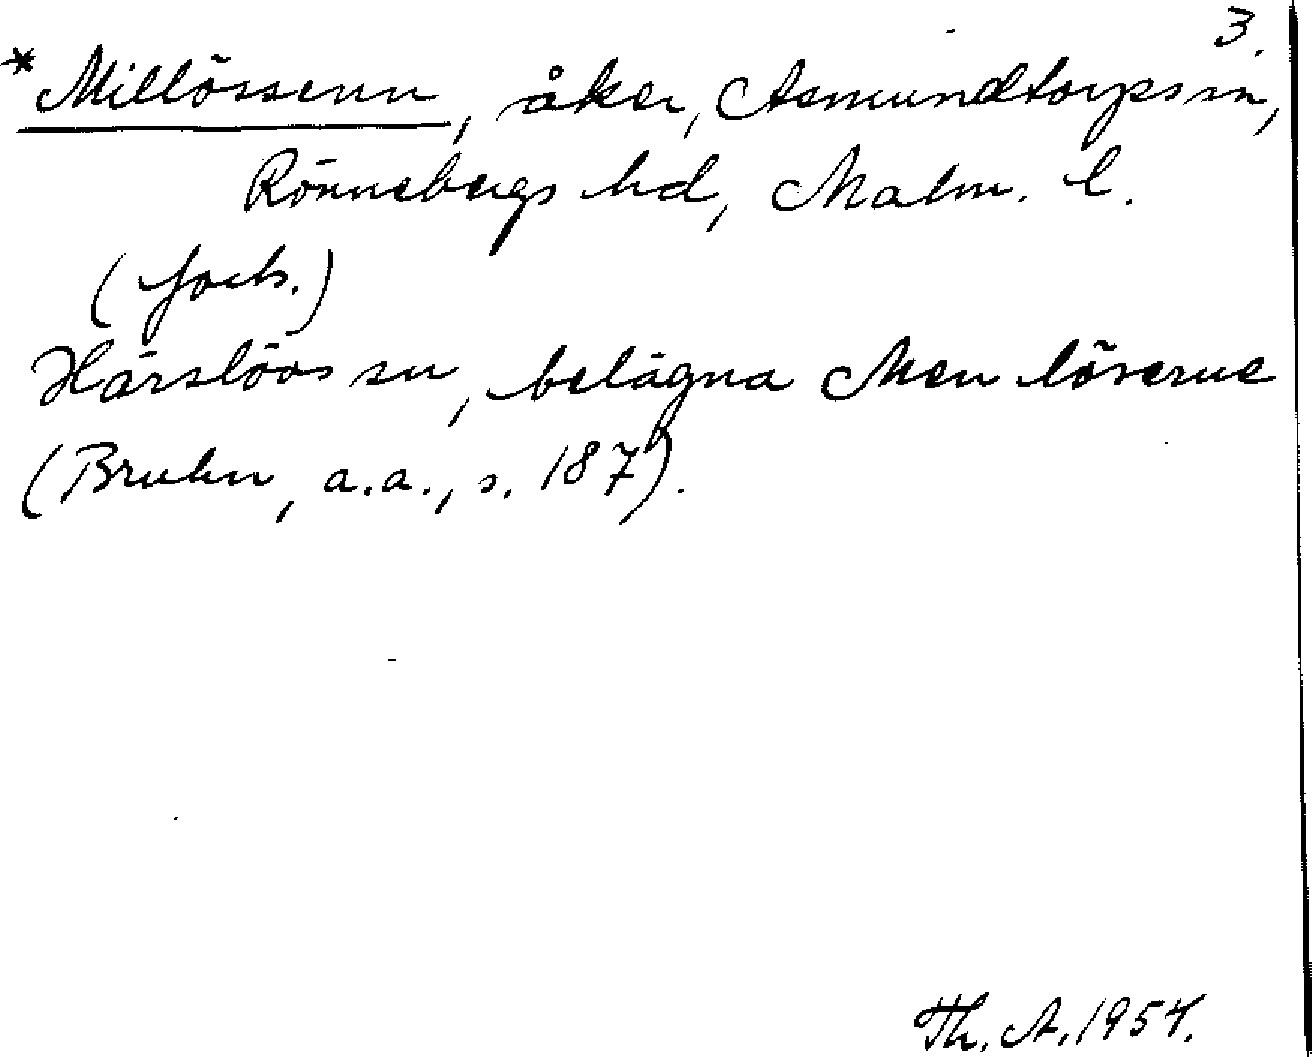 3.
*Millössenn, åker, Asmundtorps sn,
Rönnebergs hd, Malm. l.
(forts.)
Härslövs sn, belägna Men löserne
(Bruhn, a.a., s. 187).
Th. A. 1954.